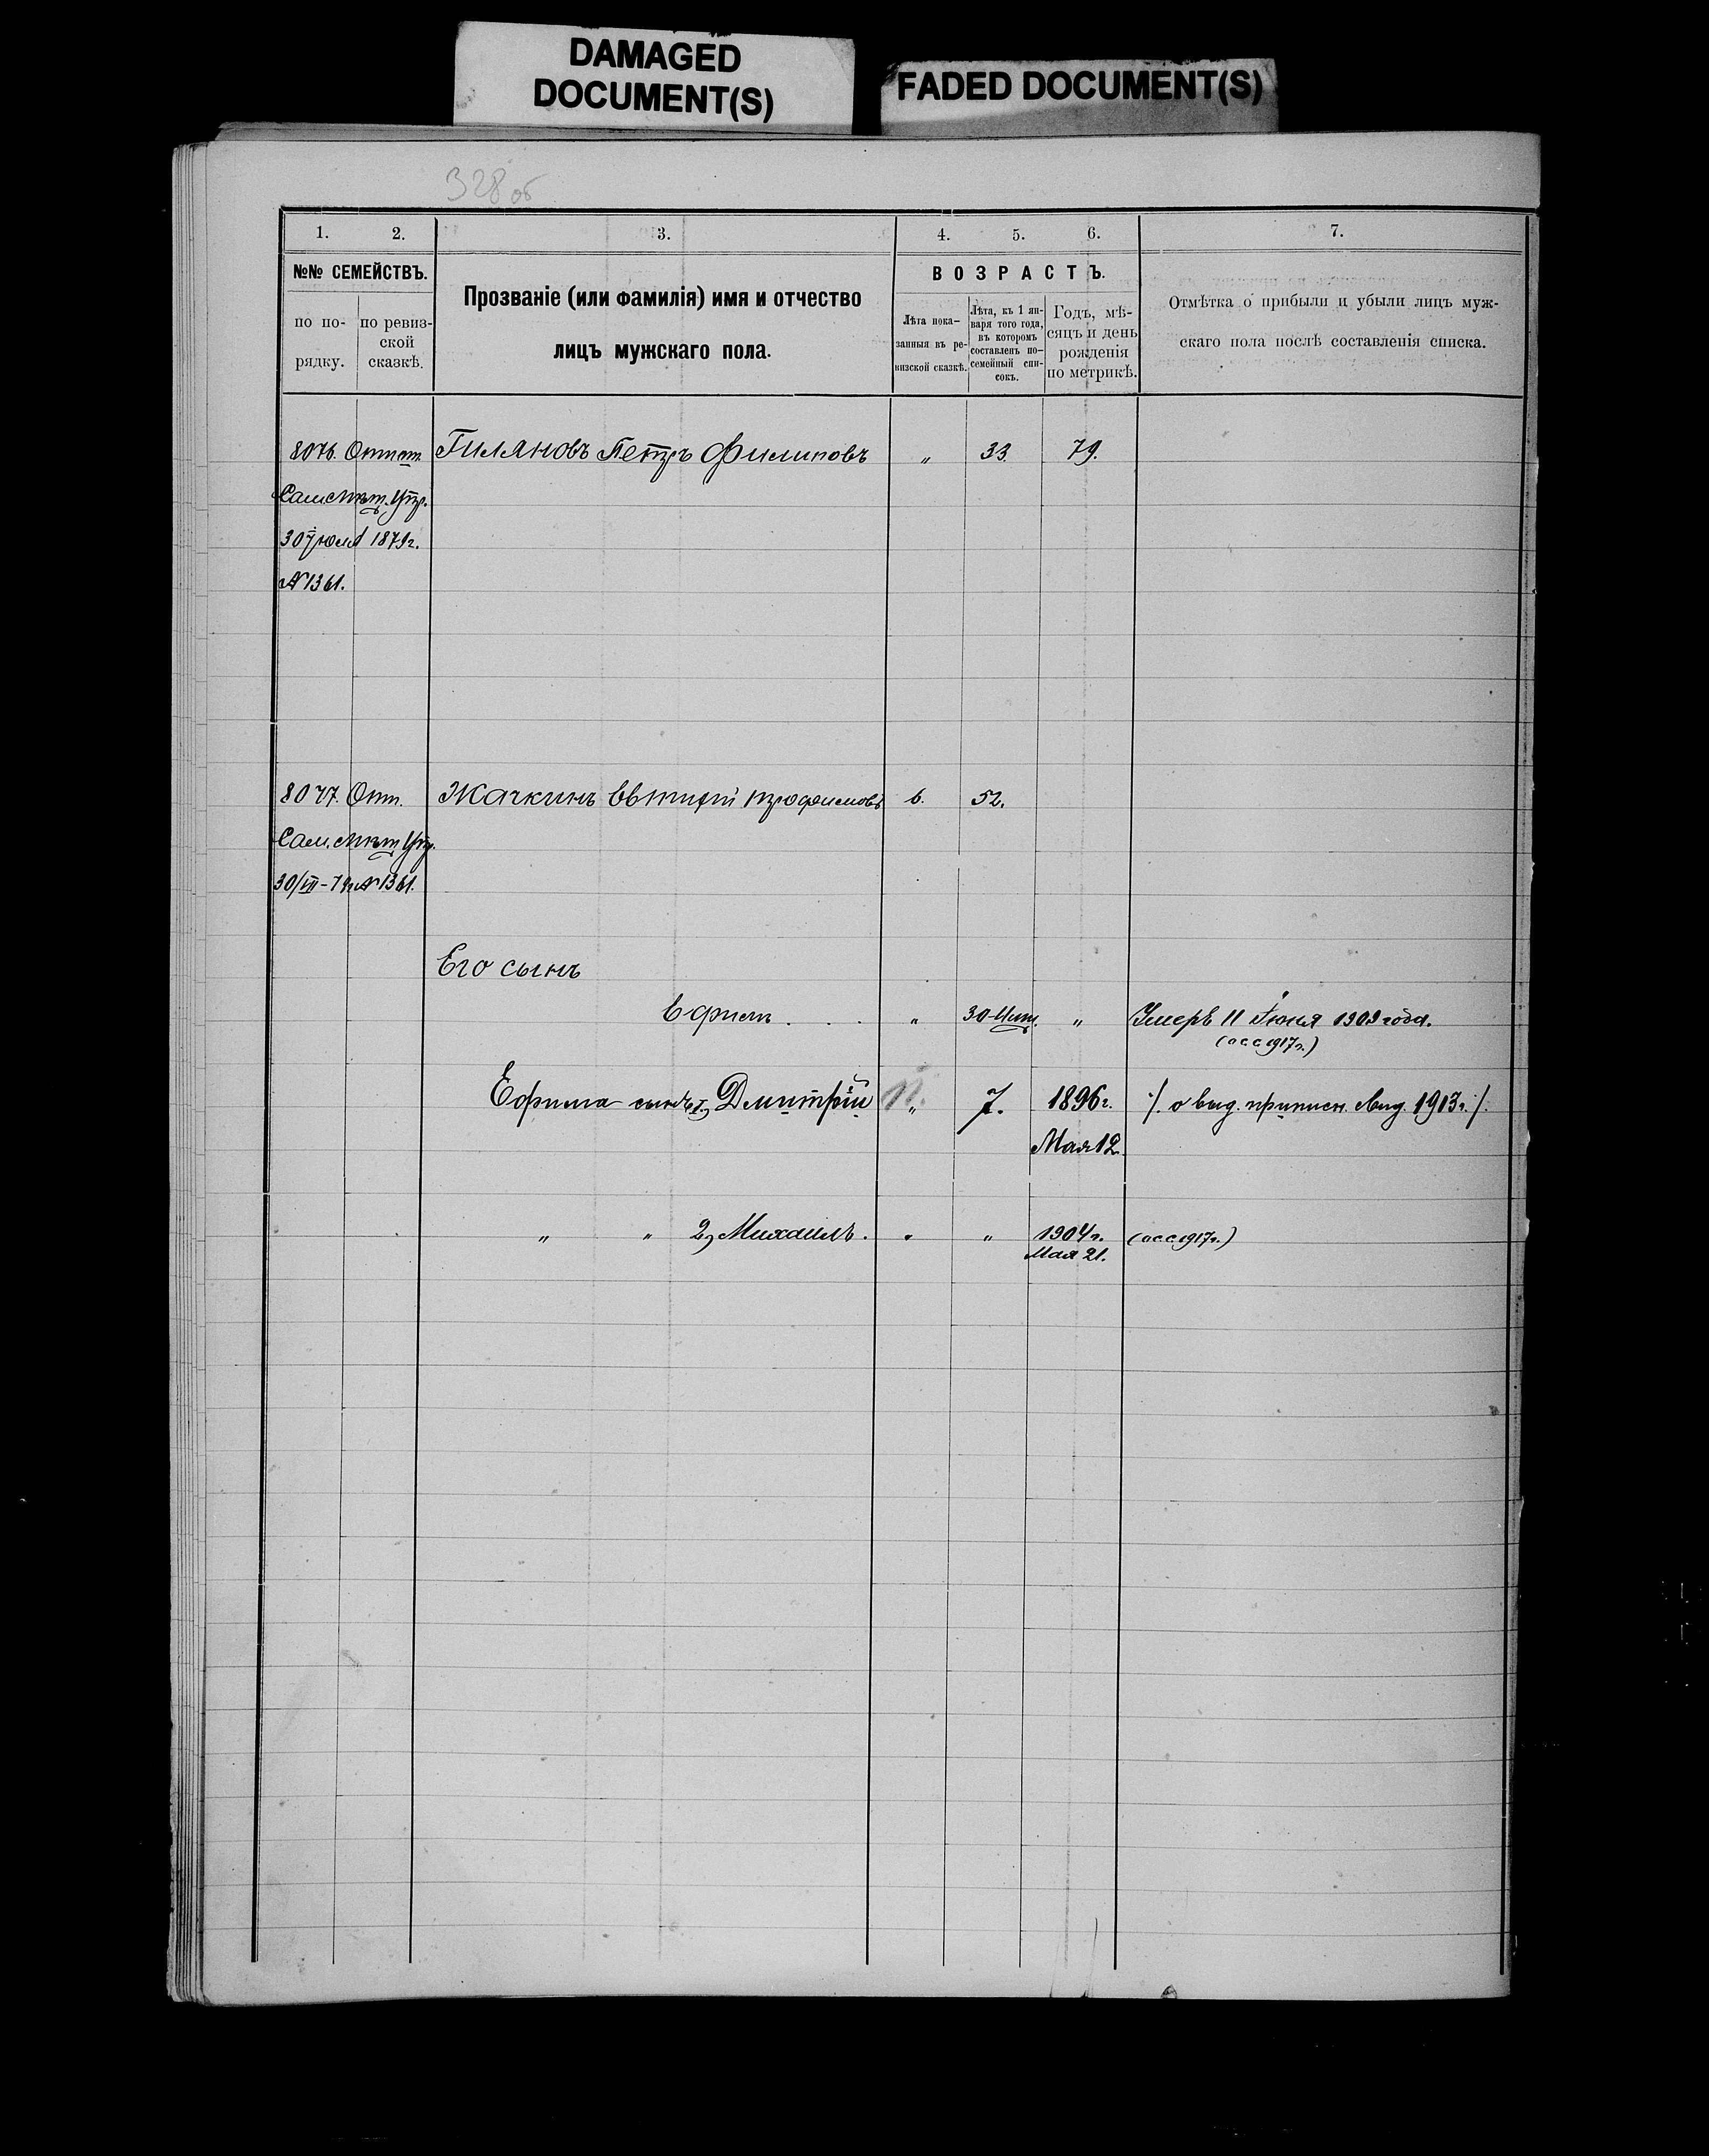 DAMAGED
DOCUMENT(S)
FADED DOCUMENT(S)
328 об
1. 2. 3. 4. 5. 6. 7.
№№ СЕМЕЙСТВЪ.
по по-
рядку.
по ревиз-
ской
сказкѣ.
Прозваніе (или фамилія) имя и отчество
лицъ мужскаго пола.
ВОЗРАСТЪ.
Лѣта пока-
занныя въ ре-
визской сказкѣ.
Лѣта, къ 1 ян-
варя того года,
въ которомъ
составленъ по-
семейный спи-
сокъ.
Годъ, мѣ-
сяцъ и день
рожденія
по метрикѣ.
Отмѣтка о прибыли и убыли лицъ муж-
скаго пола послѣ составленія списка.
8076. Гиляновъ Петръ Филиповъ „ 33. 79.
30 Іюля 1879г.
№ 1361.
8077. Отп. Жачкинъ 6. 52.
30/VII-79г. № 1361.
Его сынъ
Ефимъ . . . „ 30 „ Умеръ 11 Іюня 1909 года.
(о с с 1917г.)
Ефима сынъ 1, Дмитрій „ 7. 1896г. /. о выд. приписн. свид. 1913г. /.
Мая 12
„ „ 2, Михаилъ. „ „ 1904г. (о с с 1917г.)
Мая 21.